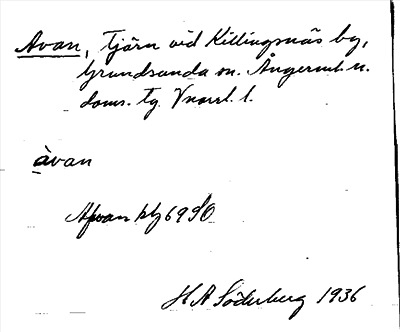 Avan, tjärn vid Killingsnäs by,
Grundsunda sn. Ångerml. n.
doms. tg. Vnorrl. l.
àvan
Afwan ktz 6990
H A Söderberg 1936